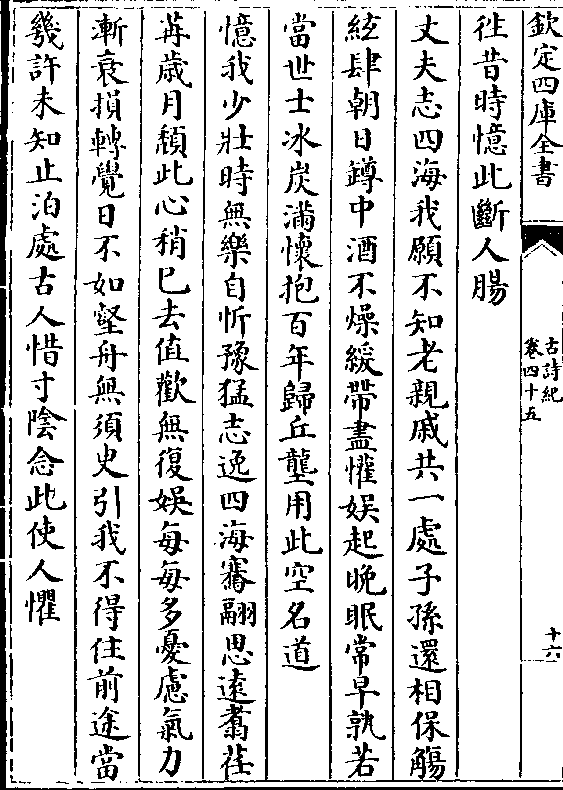 欽定四庫全書
古詩紀
卷四十五
十六
徃昔時憶此斷人腸
丈夫志四海我願不知老親戚共一處子孫還相保觴
絃肆朝日鐏中酒不燥緩帶盡懽娱起晚眠常早孰若
當世士冰炭滿懷抱百年歸丘壟用此空名道
憶我少壯時無樂自忻豫猛志逸四海騫翮思遠翥荏
苒歲月頹此心稍已去值歡無復娱每每多憂慮氣力
漸衰損轉覺日不如壑舟無須臾引我不得住前途當
幾許未知止泊處古人惜寸陰念此使人懼